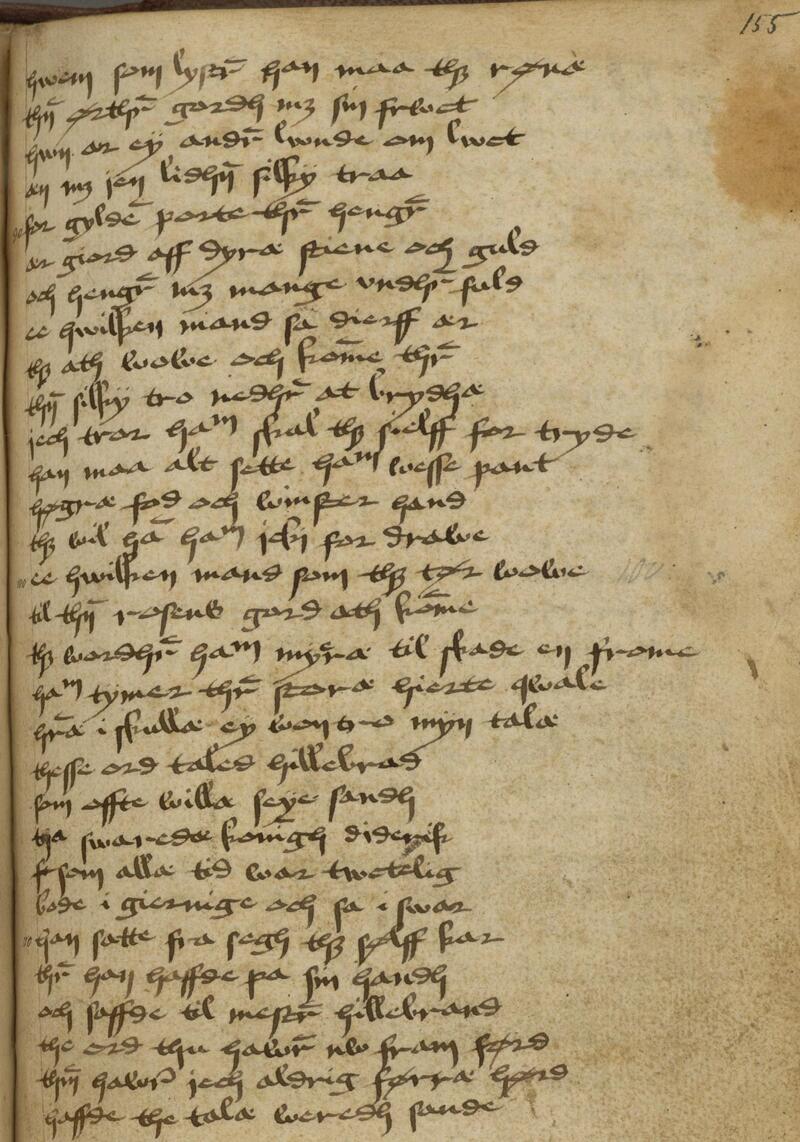 155
hwem som lystr̄ han maa thꝫ røræ
thn̄ ørthr̄ gardh mꝫ sin frwct
hwn ar ey andr̄ lwnde om lwct
an mꝫ jen lidhn̄ silky traa
for gyldē porte thr̄ hengr̄
ar giord aff dyræ stiene och guld
och hengr̄ mꝫ mange vndhr̄ fuld
ee hwilken mand sa dierff ær
thꝫ ath wowe och kom̄e thr̄
thn̄ silky tro nedhr̄ at brydhæ
jech tror haᵐ skal thꝫ sielff for tryde
han maa alt sette haᵐ wesse pant
høgræ fod och winster hand
thꝫ wil hā haᵐ icki for drawe
ee hwilken mand som thꝫ tør wowe
til thn̄ rosens gord ath kom̄e
thꝫ wordhr̄ haᵐ myræ til skade en frome
haᵐ tymer thr̄ storæ hierte qwale
hr̄æ i skullæ ey wontro myn talæ
thesse ord taled hillebrad
som offte willæ seye sandh
tha swaredæ konīgh diderik
som allæ tid war twetelig
bode i giernige och sa i swar
han satte fra segh thꝫ sølff kar
thr̄ han haffde pa sin handh
och saffde til mestr̄ hillebrand
the ord thu hawr̄ nw fram førd
thn̄ hawr̄ jech aldrig førræ hørd
haffde the talæ weredh sande